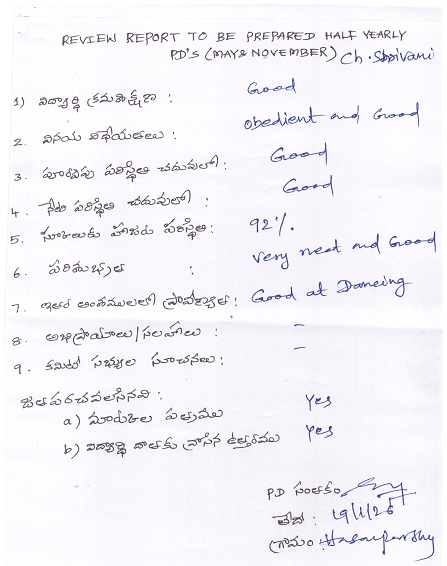 REVIEW REPORT TO BE PREPARED HALF YEARLY
P.D'S (MAY & NOVEMBER) Ch. Sravani
1) విద్యార్థి క్రమశిక్షణ : Good
2. వినయ విధేయతలు : obedient and Good
3. పూర్వపు పరిస్థితి చదువులో : Good
4. నేటి పరిస్థితి చదువులో : Good
5. స్కూలుకు హాజరు పరిస్థితి : 92%.
6. పరిశుభ్రత : very neat and Good
7. ఇతర అంశములలో ప్రావీణ్యత : Good at Dancing
8. అభిప్రాయాలు/సలహాలు : -
9. కమిటి సభ్యుల సూచనలు : -
జతపరచవలసినవి :
a) మార్కుల పత్రము Yes
b) విద్యార్థి దాతకు వ్రాసిన ఉత్తరము Yes
P.D సంతకం
తేది :
గ్రామం : Hasanparthy